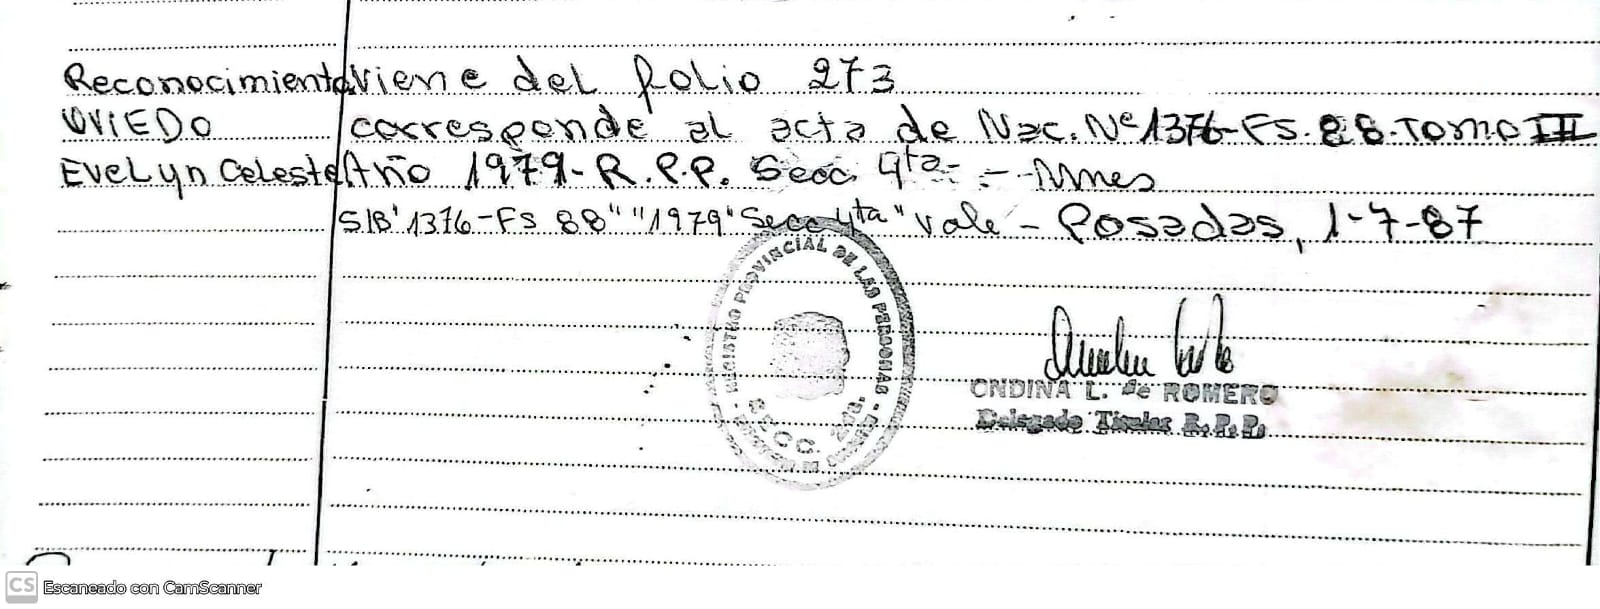 Reconocimiento Viene del folio 273
OVIEDO corresponde al acta de Nac. Nº 1376-Fs. 88. Tomo III
Evelyn Celeste Año 1979- R.P.P. Secc. 4ta- - Mnes
S/B" 1376-Fs 88" "1979" Secc 4ta" vale - Posadas, 1-7-87
REGISTRO PROVINCIAL DE LAS PERSONAS
SECC. 
ONDINA L. de ROMERO
Delegado Titular R.P.P.
CS Escaneado con CamScanner